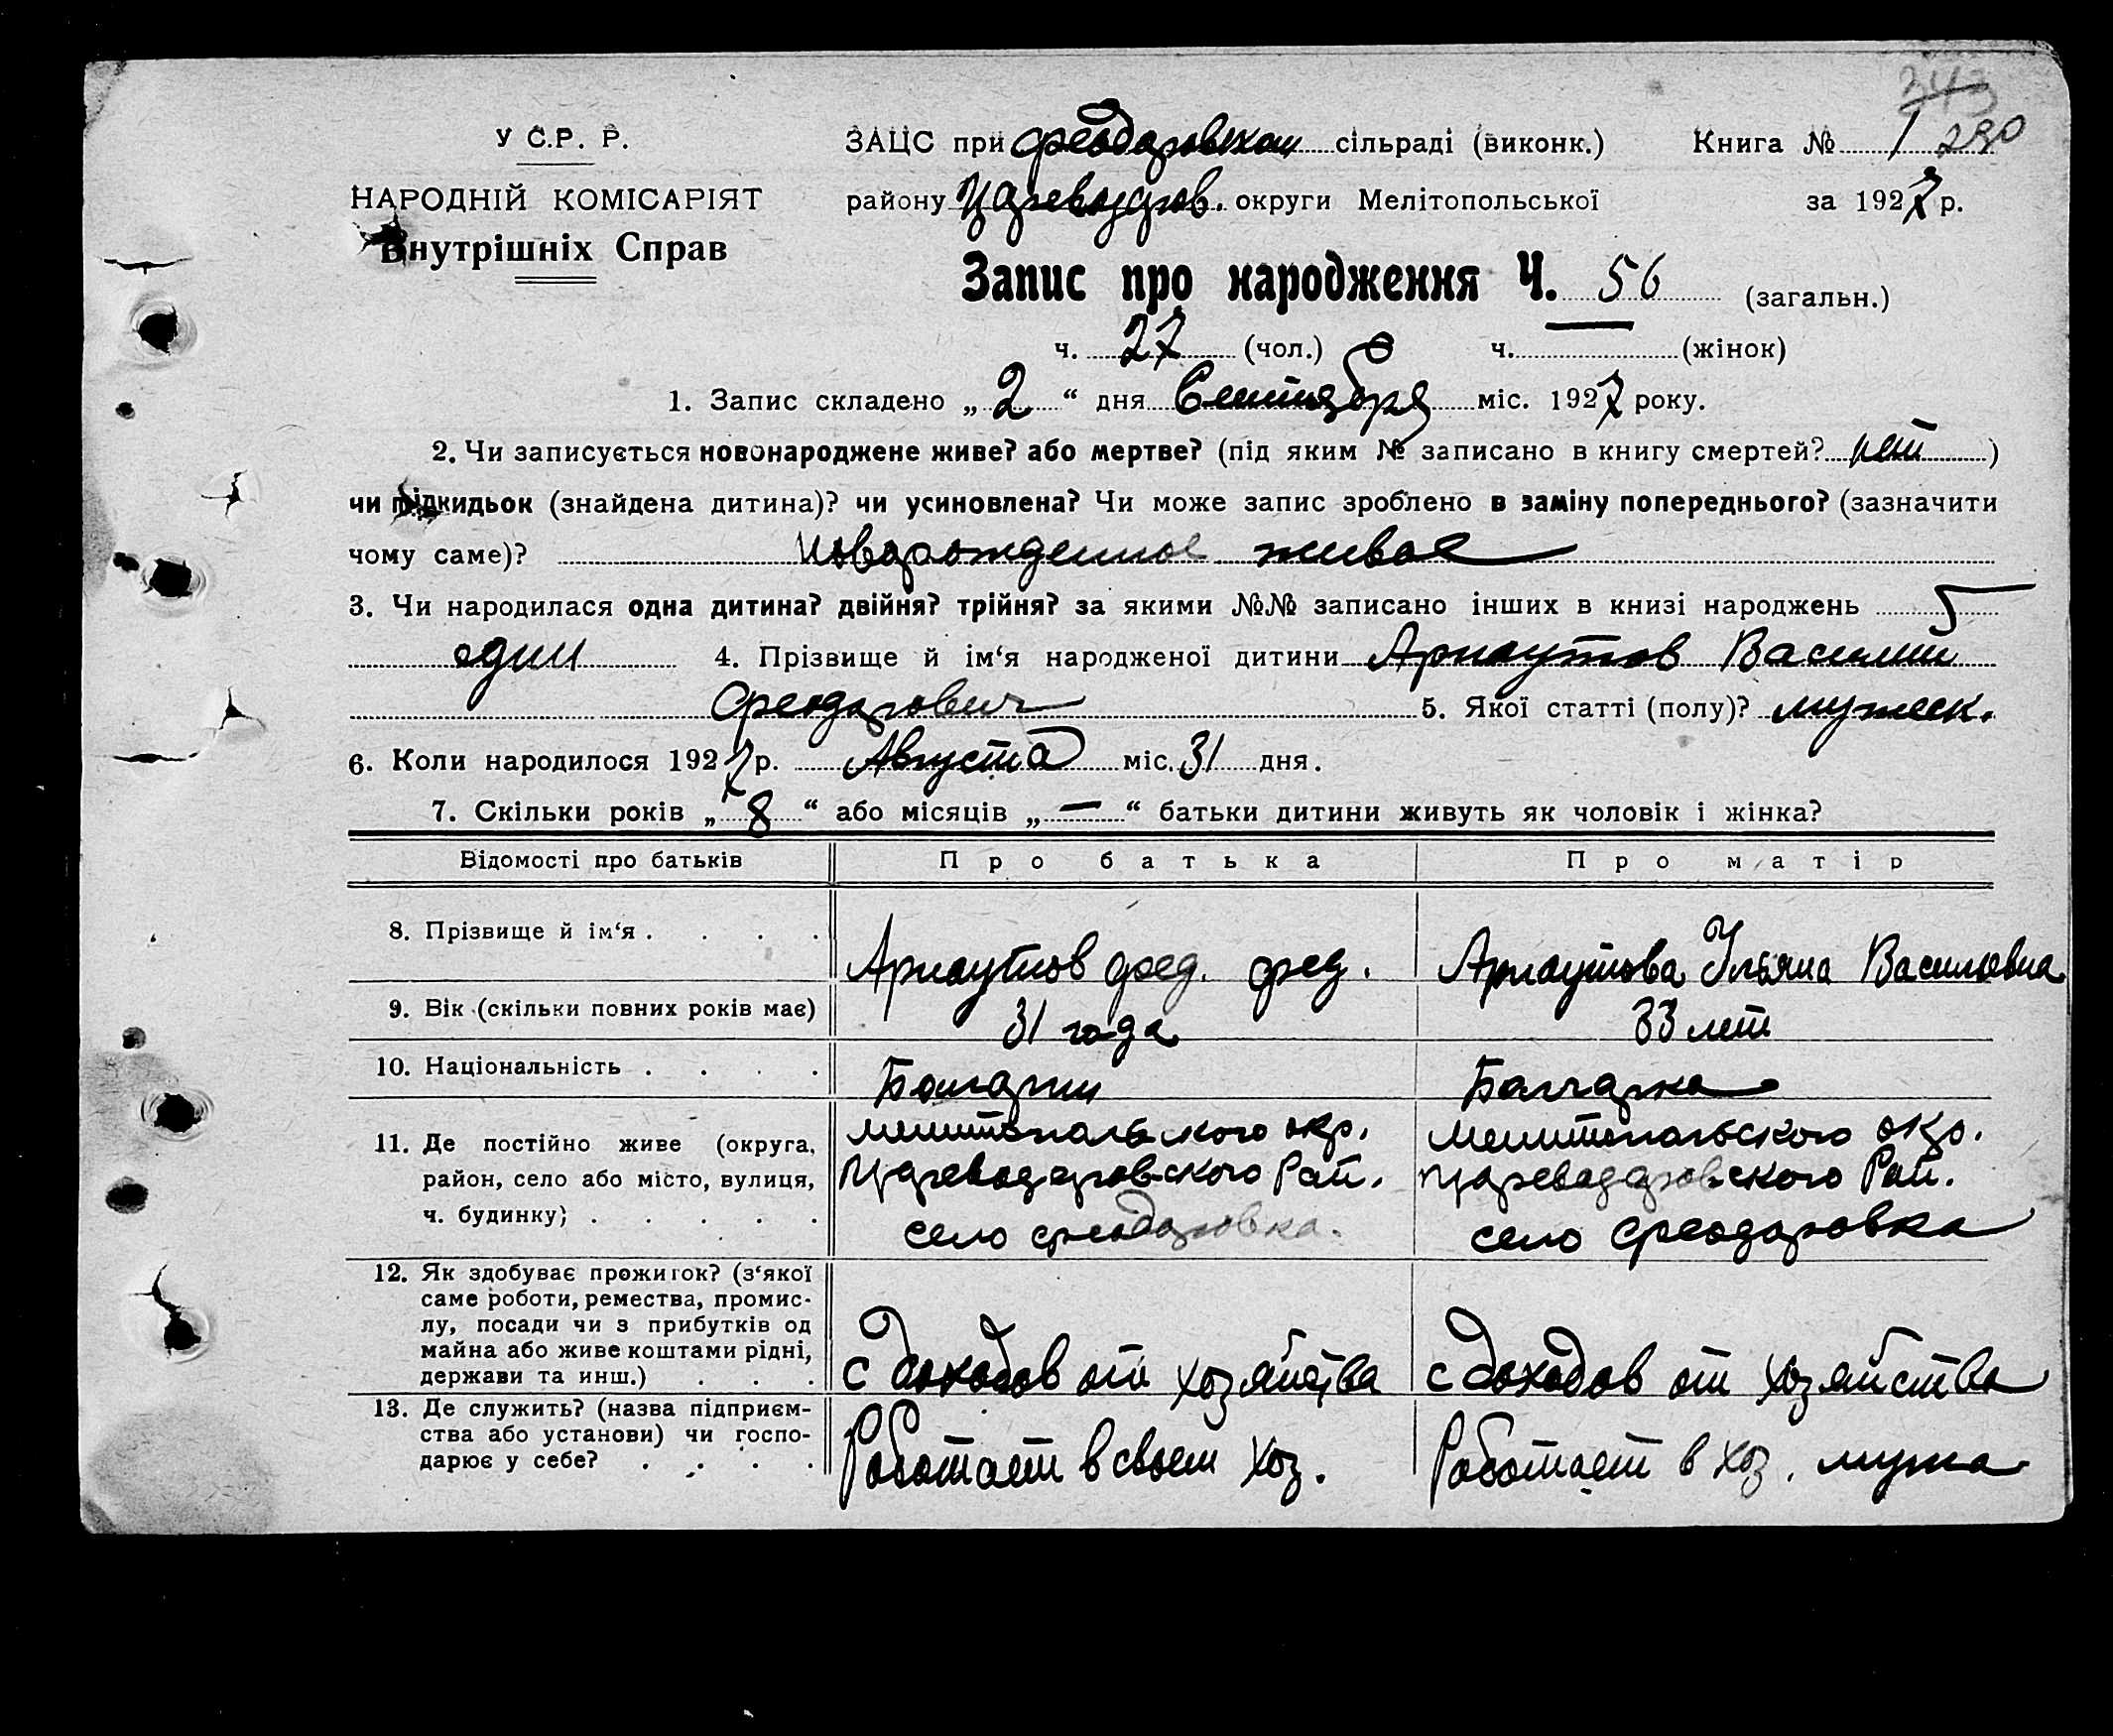 343
У С.Р. Р.
ЗАЦС при Феодоровском сільраді (виконк.) Книга № 1 290
НАРОДНІЙ КОМІСАРІЯТ
району Цареводаров. округи Мелітопольської за 1927 р.
Внутрішніх Справ
Запис про народження Ч. 56 (загальн.)
ч. 27 (чол.) ч. (жінок)
1. Запис складено „ 2 “ дня Сентября міс. 1927 року.
2. Чи записується новонароджене живе? або мертве? (під яким № записано в книгу смертей? нет )
чи підкидьок (знайдена дитина)? чи усиновлена? Чи може запис зроблено в заміну попереднього? (зазначити
чому саме)? Новорожденное живое
3. Чи народилася одна дитина? двійня? трійня? за якими №№ записано інших в книзі народжень
один 4. Прізвище й ім‘я народженої дитини Арнаутов Василий
Феодорович 5. Якої статті (полу)? мужеск.
6. Коли народилося 1927 р. Августа міс. 31 дня.
7. Скільки років „ 8 “ або місяців „ — “ батьки дитини живуть як чоловік і жінка?
Відомості про батьків Про батька Про матір
8. Прізвище й ім‘я . . . . Арнаутов фед. фед. Арнаутова Ульяна Василовна
9. Вік (скільки повних років має) 31 года 33 лет
10. Національність . . . . Болгарин Болгарка
11. Де постійно живе (округа, Мелитопольского окр. Мелитопольского окр.
район, село або місто, вулиця, Цареводаровского Рай. Цареводаровского Рай.
ч. будинку) . . . . . село Феодоровка. село Феодоровка
12. Як здобуває прожиток? (з‘якої
саме роботи, ремества, промис-
лу, посади чи з прибутків од
майна або живе коштами рідні,
держави та инш.) . . . с доходов от хозяйства с доходов от хозяйства
13. Де служить? (назва підприєм-
ства або установи) чи госпо-
дарює у себе? . . . . Работает в своем хоз. Работает в хоз. мужа